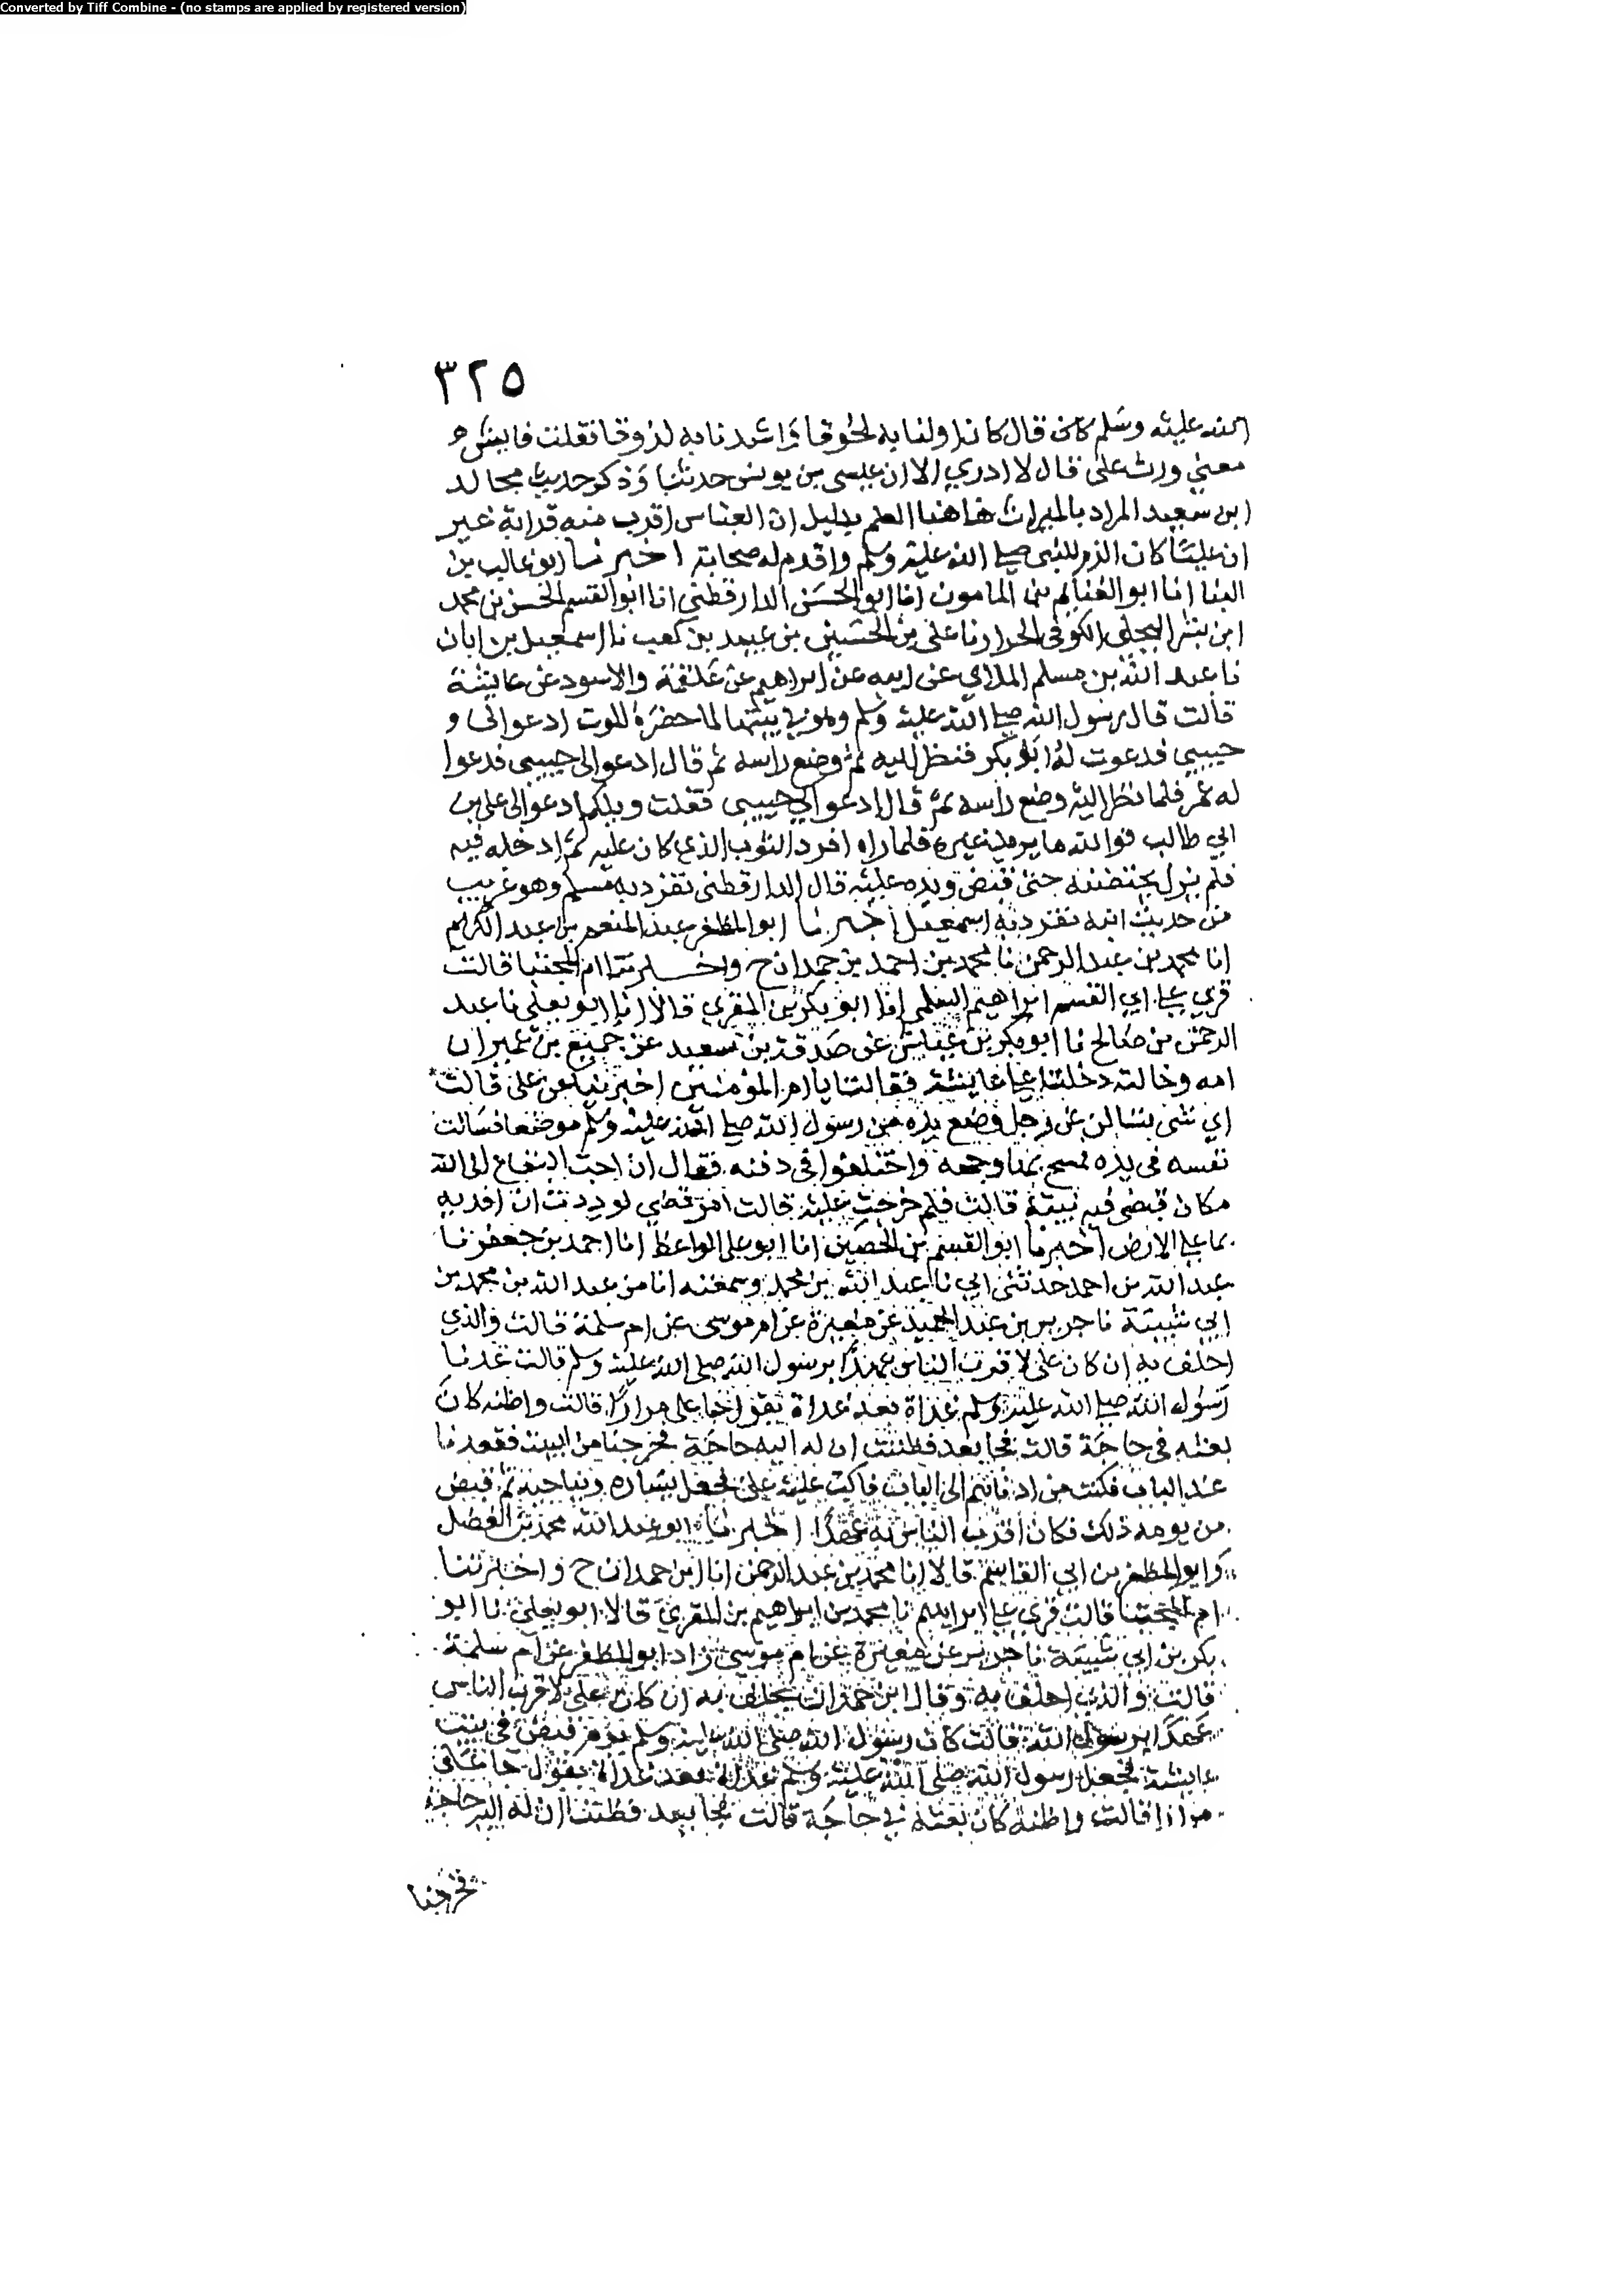 Converted by Tiff Combine - (no stamps are applied by registered version)
٣٢٥
الله عليه وسلم كان قال كان اولنا به لحوقا واشدنا به لزوقا فقلت فايش
معنى ورث على قال لا ادري الا ان عيسى بن يونس حدثنا وذكر حديث مجالد
ابن سعيد المراد بالميراث هاهنا العلم بدليل ان العباس اقرب منه قرابة غير
ان عليّا كان الزم للنبى صلى الله عليه وسلم واقدم له صحابة اخبرنا ابو غالب بن
البنا انا ابو الغنايم بن المامون انا ابو الحسن الدارقطني انا ابو القسم الحسن بن محمد
ابن بشر البجلي الكوفى الخزاز نا على بن الحسين بن عبيد بن كعب نا اسمعيل بن ابان
نا عبد الله بن مسلم الملاي عن ابيه عن ابراهيم عن علقمة والاسود عن عايشة
قالت قال رسول الله صلى الله عليه وسلم وهو في بيتها لما حضره الموت ادعوا لى
حبيبي فدعوت له ابو بكر فنظر اليه ثم وضع راسه ثم قال ادعوا لى حبيبى فدعوا
له عمر فلما نظر اليه وضع راسه ثم قال ادعوا لي حبيبى فقلت ويلكم ادعوا لى على بن
ابي طالب فوالله ما يريد غيره فلما راه افرد الثوب الذى كان عليه ثم ادخله فيه
فلم يزل يحتضنه حتى قبض ويده عليه قال الدارقطنى تفرد به مسلم وهو غريب
من حديث ابنه تفرد به اسمعيل اخبرنا ابو المظفر عبد المنعم بن عبد الكريم
انا محمد بن عبد الرحمن نا محمد بن احمد بن حمدان ح واخبرتنا ام المجتبا قالت
قري على ابي القسم ابراهيم السلمي انا ابو بكر بن المقري قالا انا ابو يعلي نا عبد
الرحمن بن صالح نا ابو بكر بن عياش عن صدقة بن سعيد عن جميع بن عمير ان
امه وخالته دخلتا على عايشة فقالتا يا ام المؤمنين اخبرينا عن على قالت
اي شى تسالن عن رجل وضع يده من رسول الله صلى الله عليه وسلم موضعا فسالت
نفسه فى يده فمسح بها وجهه واختلفوا فى دفنه فقال ان احب البقاع الى الله
مكان قبض فيه نبيه قالت فلم خرجت عليه قالت امر قضي لوددت ان افديه
بما على الارض اخبرنا ابو القسم بن الحصين انا ابو على الواعظ انا احمد بن جعفر نا
عبد الله بن احمد حدثني ابي نا عبد الله بن محمد وسمعته انا من عبد الله بن محمد بن
ابي شيبة نا جرير بن عبد الحميد عن مغيرة عن ام موسى عن ام سلمة قالت والذي
احلف به ان كان على لاقرب الناس عهدا برسول الله صلى الله عليه وسلم قالت عدنا
رسول الله صلى الله عليه وسلم غداة بعد غداة يقول جا على مرارًا قالت واظنه كان
بعثه فى حاجة قالت فجا بعد فظننت ان له اليه حاجة فخرجنا من البيت فقعدنا
عند الباب فكنت من ادناهم الى الباب فاكب عليه على فجعل يساره ويناجيه ثم قبض
من يومه ذلك فكان اقرب الناس به عهدًا اخبرنا ابو عبد الله محمد بن الفضل
وابو المظفر بن ابي القاسم قالا انا محمد بن عبد الرحمن انا ابن حمدان ح واخبرتنا
ام المجتبا قالت قري على ابراهيم نا محمد بن ابراهيم بن المقري قالا ابو يعلي نا ابو
بكر بن ابي شيبة نا جرير عن مغيرة عن ام موسى زاد ابو المظفر عن ام سلمة
قالت والذي احلف به وقال ابن حمدان تحلف به ان كان على لاقرب الناس
عهدًا برسول الله قالت كان رسول الله صلى الله عليه وسلم يوم قبض فى بيت
عايشة فجعل رسول الله صلى الله عليه وسلم غداة بعد غداة يقول جا على
مرارا قالت واظنه كان بعثه في حاجة قالت فجا بعد فظننا ان له اليه حاجة
فخرجنا